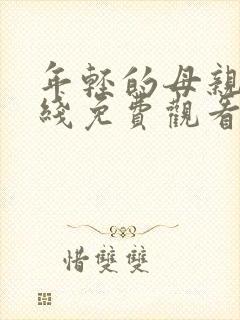 年輕的母親
綫免費觀看
惜雙雙